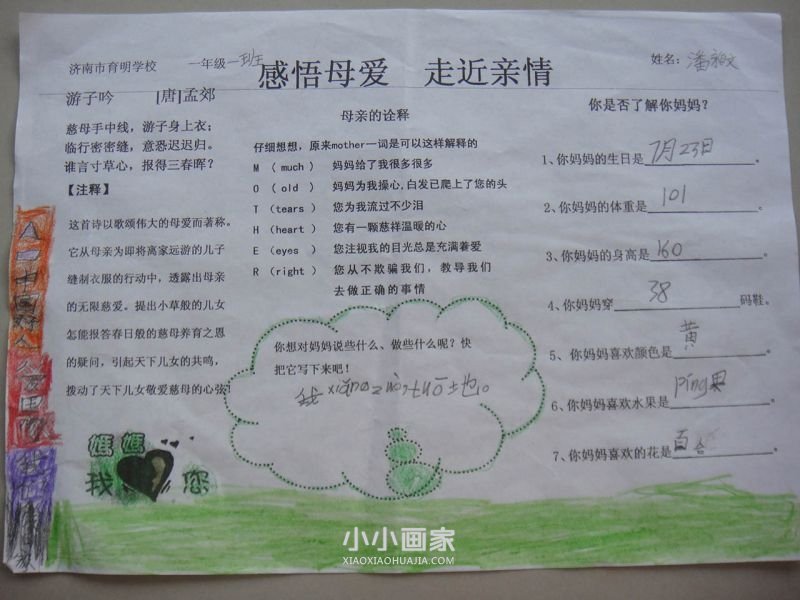 济南市育明学校 一年级一班
感悟母爱 走近亲情
姓名：潘昶文
游子吟 [唐]孟郊
慈母手中线，游子身上衣；
临行密密缝，意恐迟迟归。
谁言寸草心，报得三春晖？
【注释】
这首诗以歌颂伟大的母爱而著称。
它从母亲为即将离家远游的儿子
缝制衣服的行动中，透露出母亲
的无限慈爱。提出小草般的儿女
怎能报答春日般的慈母养育之恩
的疑问，引起天下儿女的共鸣，
拨动了天下儿女敬爱慈母的心弦！
媽媽
我 您
母亲的诠释
仔细想想，原来mother一词是可以这样解释的
M （ much ） 妈妈给了我很多很多
O （ old ） 妈妈为我操心,白发已爬上了您的头
T （tears ） 您为我流过不少泪
H （heart ） 您有一颗慈祥温暖的心
E （eyes ） 您注视我的目光总是充满着爱
R （right ） 您从不欺骗我们，教导我们
去做正确的事情
你想对妈妈说些什么、做些什么呢？快
把它写下来吧！
我xiǎng
你是否了解你妈妈？
1、你妈妈的生日是7月23日。
2、你妈妈的体重是101。
3、你妈妈的身高是160。
4、你妈妈穿38码鞋。
5、你妈妈喜欢颜色是黄。
6、你妈妈喜欢水果是píng果。
7、你妈妈喜欢的花是百合。
小小画家
XIAOXIAOHUAJIA.COM